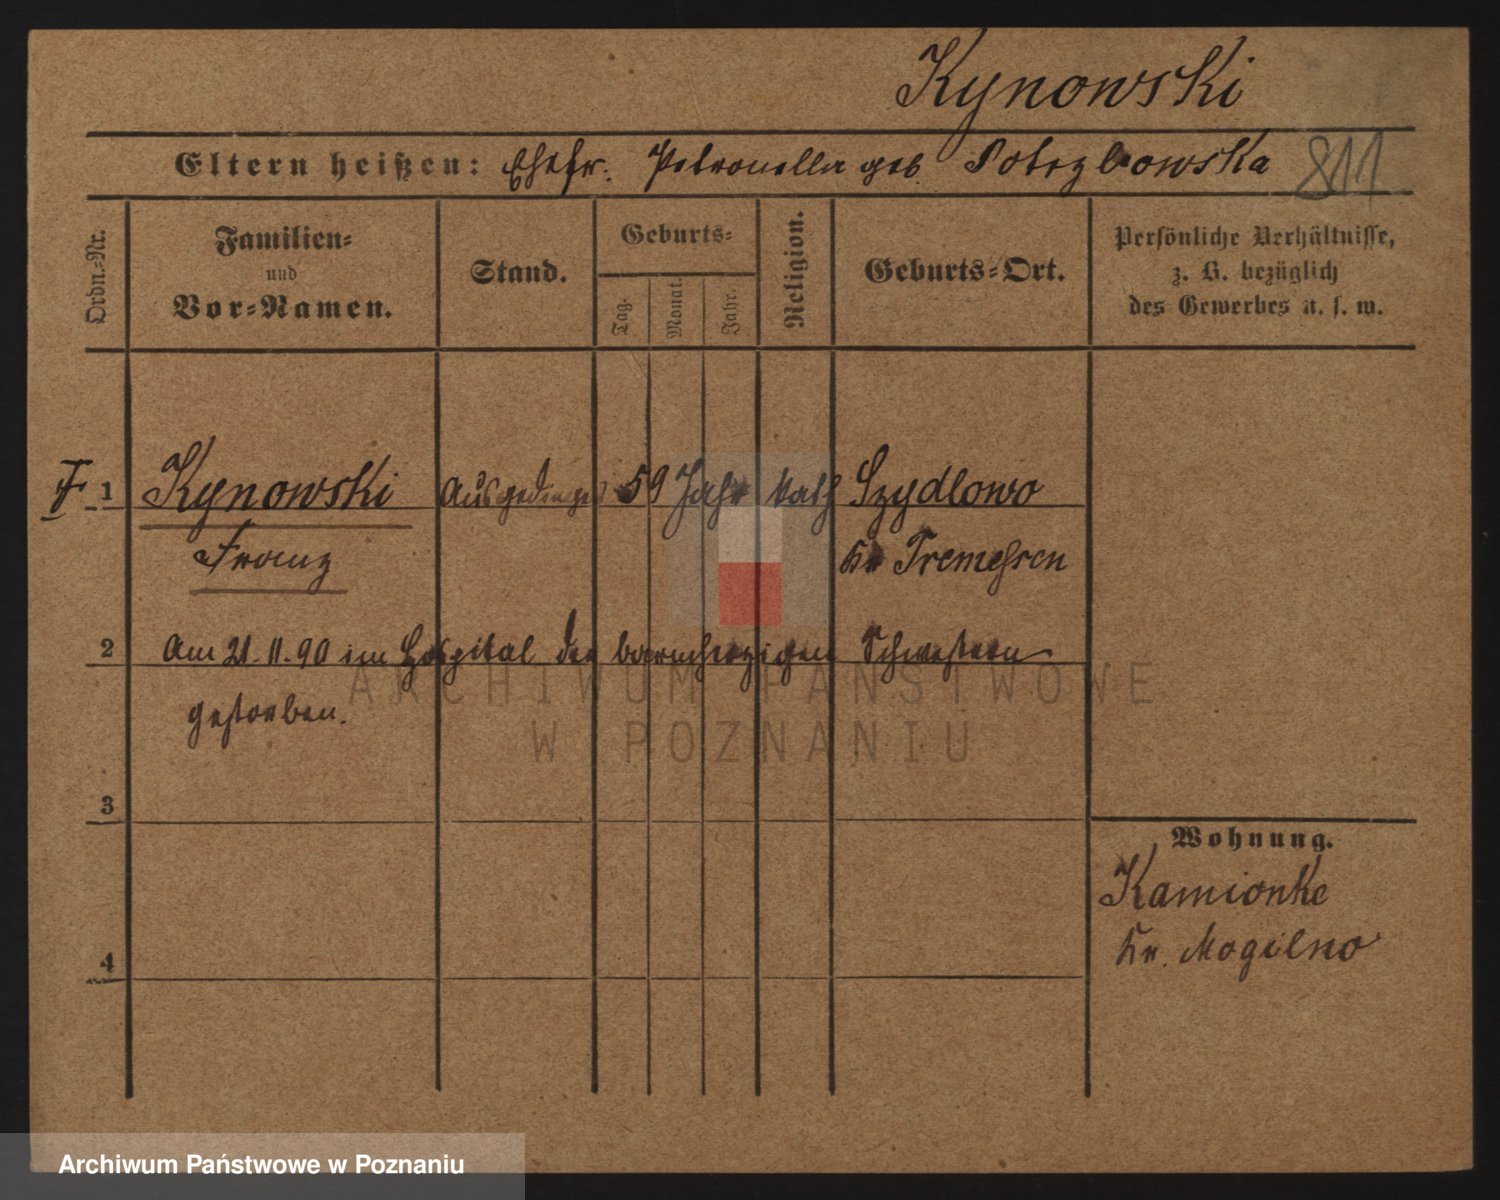 Kynowski
Eltern heißen: Ehefr. Petronella geb. Potrzbowska 811
Ordn.-Nr.
Familien-
und
Vor-Namen.
Stand.
Geburts-
Tag.
Monat.
Jahr.
Religion.
Geburts-Ort.
Persönliche Verhältnisse,
z. B. bezüglich
des Gewerbes u. s. w.
1 Kynowski Ausgedinger 59 Jahr kath Szydlowo
Franz Kr Tremessen
2 Am 21.11.90 im Hospital der barmherzigen Schwestern
gestorben.
ARCHIWUM PAŃSTWOWE
W POZNANIU
3
Wohnung.
Kamionke
Kr. Mogilno
4
Archiwum Państwowe w Poznaniu